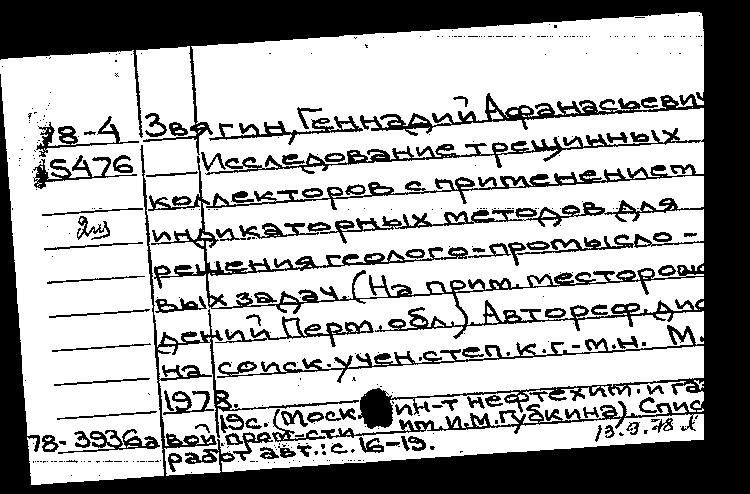 78-4 Звягин, Геннадий Афанасьевич
5476 Исследование трещинных
коллекторов с применением
2 из индикаторных методов для
решения геолого-промысло-
вых задач. (На прим. месторож
дений Перм. обл.) Автореф. дис
на соиск. учен. степ. к.г.-м.н. М.
1978.
19с. (Моск. ин-т нефтехим. и газ
78-3936а вой пром-сти им. И.М. Губкина). Спис
работ авт.: с. 16-19. 13.9.78